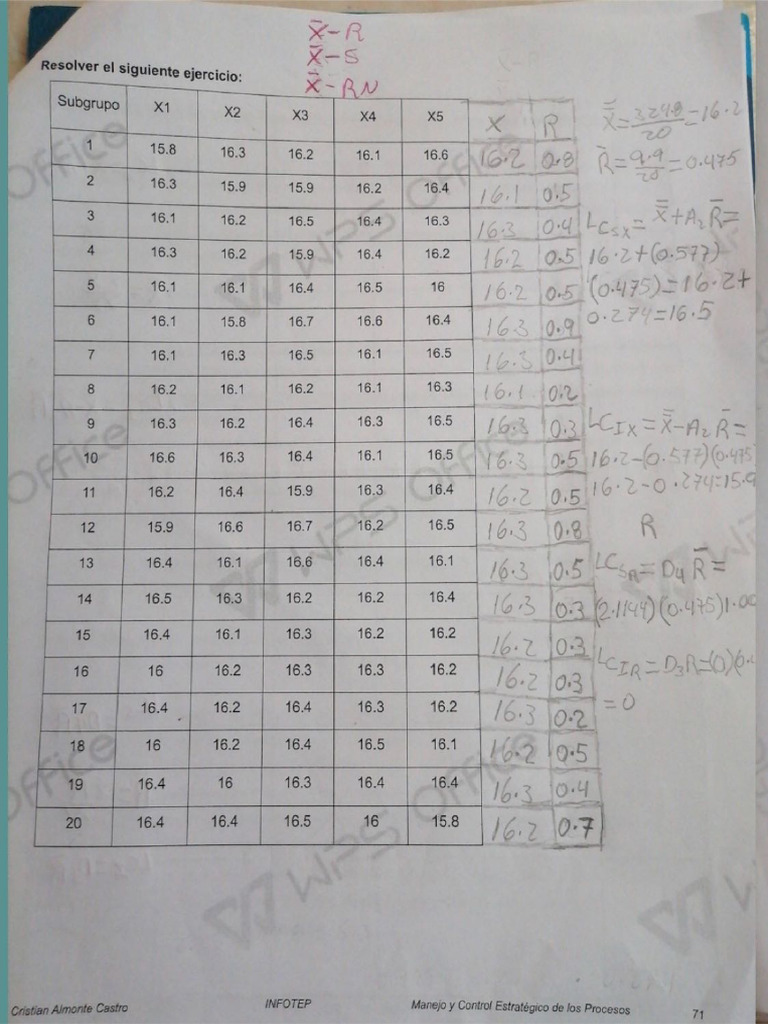 X̄-R
X̄-S
X̄-RN
Resolver el siguiente ejercicio:
Subgrupo X1 X2 X3 X4 X5 X R
1 15.8 16.3 16.2 16.1 16.6 16.2 0.8
2 16.3 15.9 15.9 16.2 16.4 16.1 0.5
3 16.1 16.2 16.5 16.4 16.3 16.3 0.4
4 16.3 16.2 15.9 16.4 16.2 16.2 0.5
5 16.1 16.1 16.4 16.5 16 16.2 0.5
6 16.1 15.8 16.7 16.6 16.4 16.3 0.9
7 16.1 16.3 16.5 16.1 16.5 16.3 0.4
8 16.2 16.1 16.2 16.1 16.3 16.1 0.2
9 16.3 16.2 16.4 16.3 16.5 16.3 0.3
10 16.6 16.3 16.4 16.1 16.5 16.3 0.5
11 16.2 16.4 15.9 16.3 16.4 16.2 0.5
12 15.9 16.6 16.7 16.2 16.5 16.3 0.8
13 16.4 16.1 16.6 16.4 16.1 16.3 0.5
14 16.5 16.3 16.2 16.2 16.4 16.3 0.3
15 16.4 16.1 16.3 16.2 16.2 16.2 0.3
16 16 16.2 16.3 16.3 16.2 16.2 0.3
17 16.4 16.2 16.4 16.3 16.2 16.3 0.2
18 16 16.2 16.4 16.5 16.1 16.2 0.5
19 16.4 16 16.3 16.4 16.4 16.3 0.4
20 16.4 16.4 16.5 16 15.8 16.2 0.7
X̿=324.8/20=16.2
R̄=9.9/20=0.475
LCSX=X̿+A2R̄=
16.2+(0.577)
(0.475)=16.2+
0.274=16.5
LCIX=X̿-A2R̄=
16.2-(0.577)(0.475
16.2-0.274=15.9
R
LCSR=D4R̄=
(2.1144)(0.475)1.00
LCIR=D3R=(0)(0.4
=0
WPS Office
Cristian Almonte Castro INFOTEP Manejo y Control Estratégico de los Procesos 71